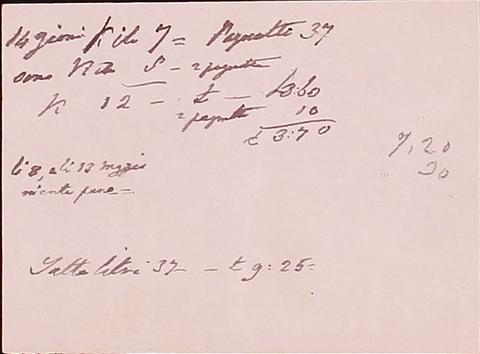 14 gioni Kili 7 = Pagnotte 37
sono Kili 5 - 2 pagnotte
K 12 - £ - 3:60
2 pagnotte 10
£ 3:70
7,20
30
li 8, e li 13 maggio
niente pane =
Latte litri 37 - £ 9:25=